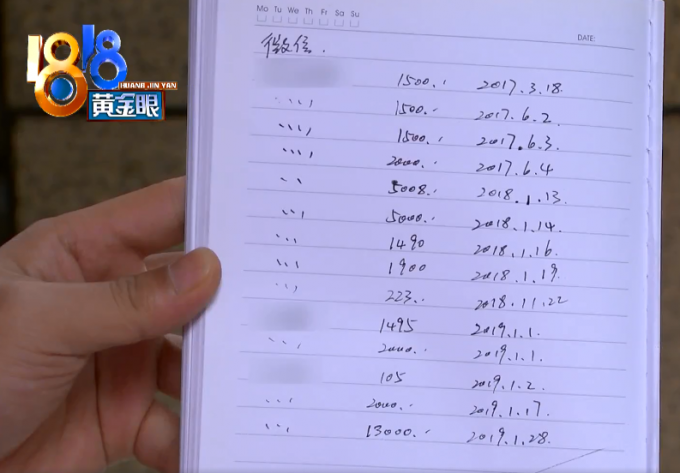 Mo Tu We Th Fr Sa Su
DATE:
微信.
1818
HUANG JIN YAN
黄金眼
1500. 2017.3.18.
1500. 2017.6.2.
1500. 2017.6.3.
2000. 2017.6.4
5008. 2018.1.13.
5000. 2018.1.14.
1490 2018.1.16.
1900 2018.1.19.
223. 2018.11.22
1495 2019.1.1.
2000. 2019.1.1.
105 2019.1.2.
2000. 2019.1.17.
13000. 2019.1.28.